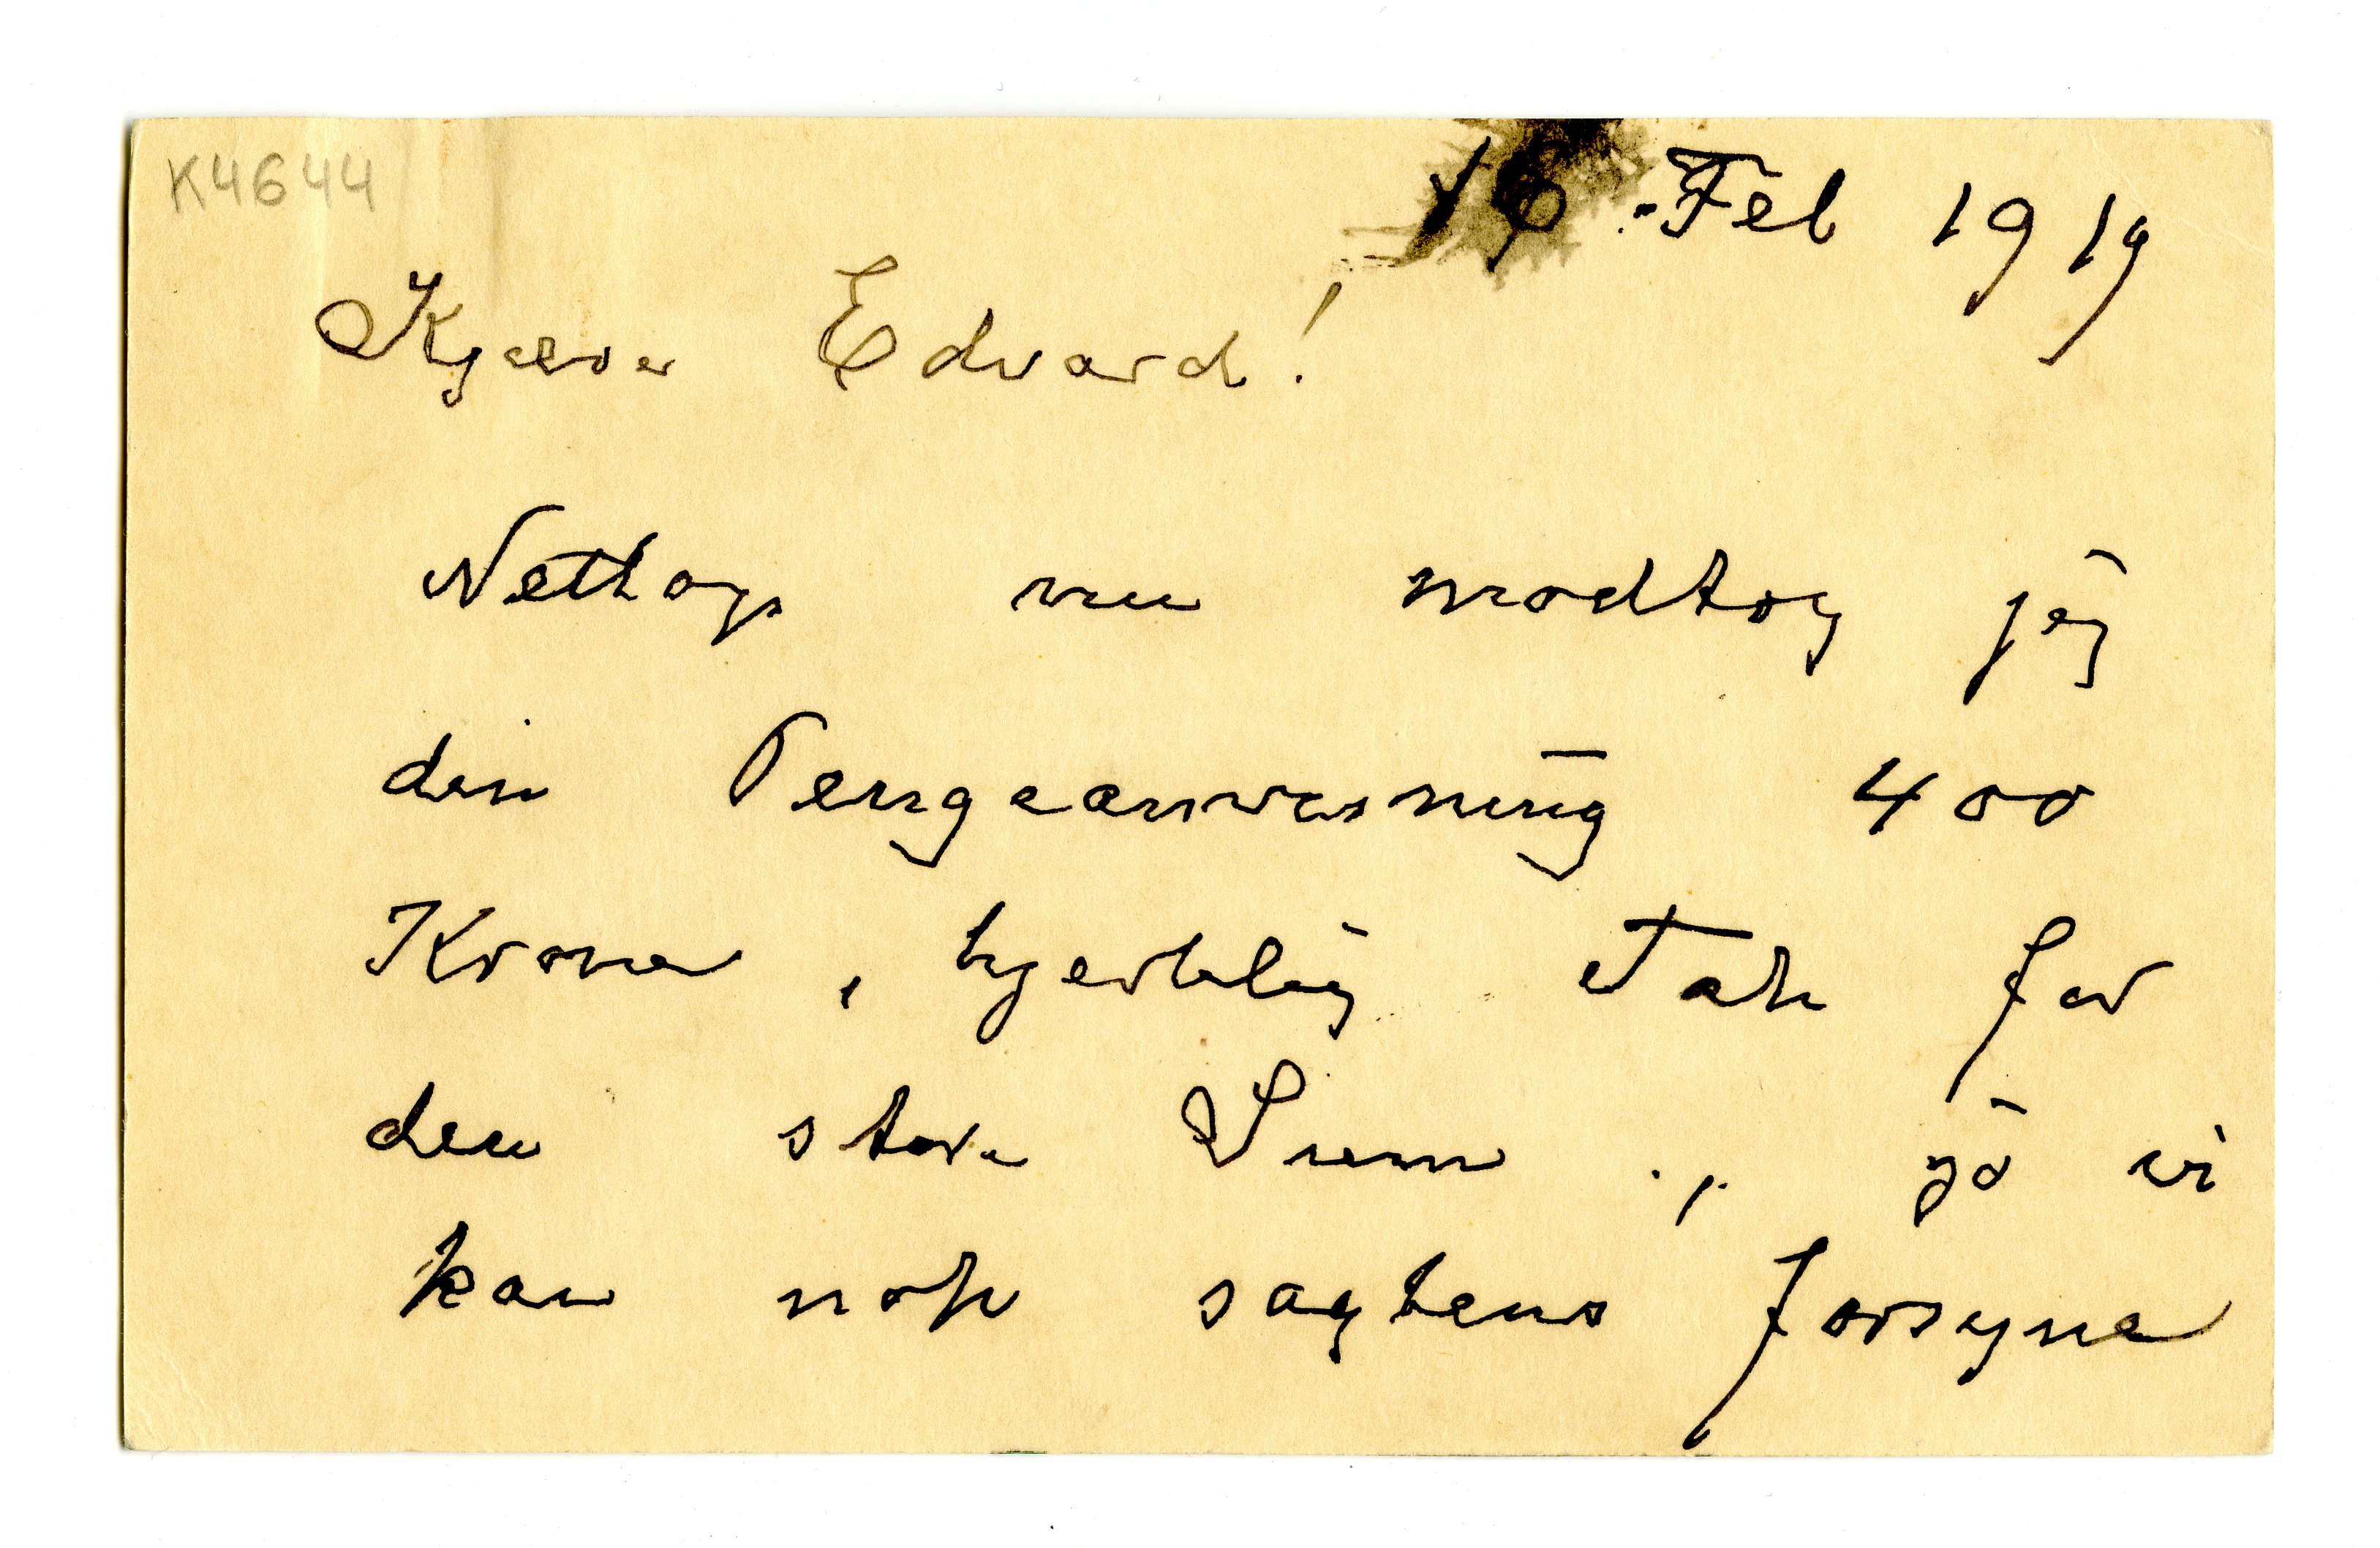 K4644
16. Feb 1919
Kjære Edvard!
Netthop nu modtog jeg
din Pengeanvisning 400
Krone, hjertelig Tak for
den store Sum., jo vi
kan nok sagtens forsyne